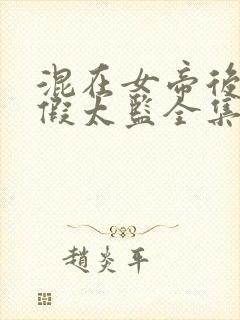 混在女帝後
假太監全集
趙炎平